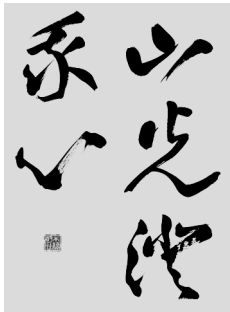 山光澄
我心